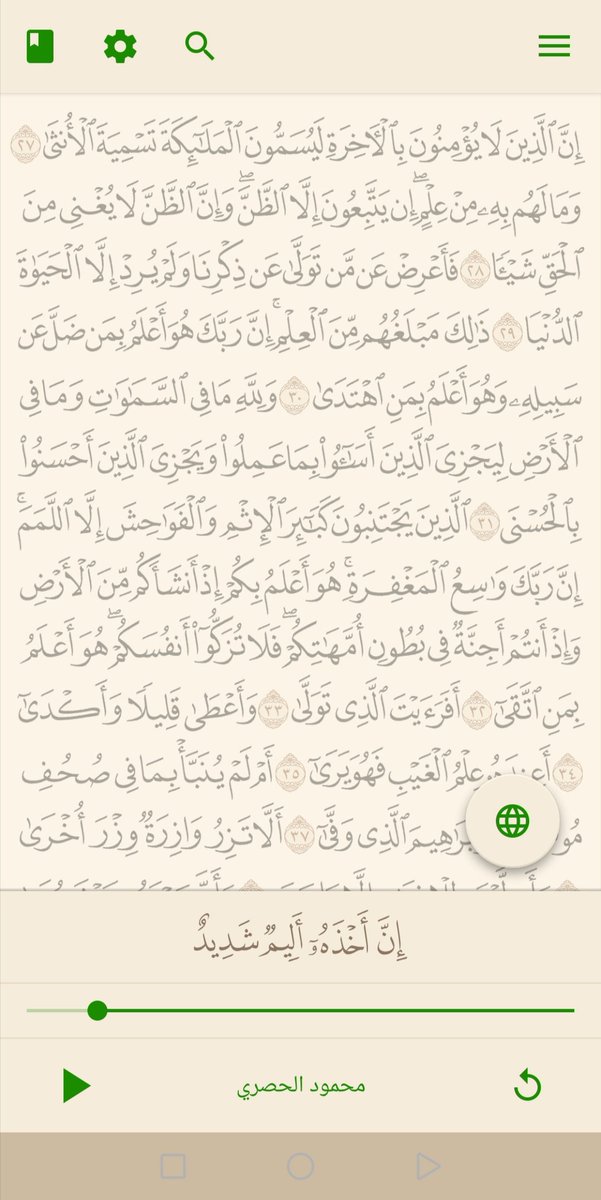 إِنَّ ٱلَّذِينَ لَا يُؤْمِنُونَ بِٱلْـَٔاخِرَةِ لَيُسَمُّونَ ٱلْمَلَـٰٓئِكَةَ تَسْمِيَةَ ٱلْأُنثَىٰ ٢٧
وَمَا لَهُم بِهِۦ مِنْ عِلْمٍ ۖ إِن يَتَّبِعُونَ إِلَّا ٱلظَّنَّ ۖ وَإِنَّ ٱلظَّنَّ لَا يُغْنِى مِنَ
ٱلْحَقِّ شَيْـًٔا ٢٨ فَأَعْرِضْ عَن مَّن تَوَلَّىٰ عَن ذِكْرِنَا وَلَمْ يُرِدْ إِلَّا ٱلْحَيَوٰةَ
ٱلدُّنْيَا ٢٩ ذَٰلِكَ مَبْلَغُهُم مِّنَ ٱلْعِلْمِ ۚ إِنَّ رَبَّكَ هُوَ أَعْلَمُ بِمَن ضَلَّ عَن
سَبِيلِهِۦ وَهُوَ أَعْلَمُ بِمَنِ ٱهْتَدَىٰ ٣٠ وَلِلَّهِ مَا فِى ٱلسَّمَـٰوَٰتِ وَمَا فِى
ٱلْأَرْضِ لِيَجْزِىَ ٱلَّذِينَ أَسَـٰٓـُٔوا۟ بِمَا عَمِلُوا۟ وَيَجْزِىَ ٱلَّذِينَ أَحْسَنُوا۟
بِٱلْحُسْنَى ٣١ ٱلَّذِينَ يَجْتَنِبُونَ كَبَـٰٓئِرَ ٱلْإِثْمِ وَٱلْفَوَٰحِشَ إِلَّا ٱللَّمَمَ ۚ
إِنَّ رَبَّكَ وَٰسِعُ ٱلْمَغْفِرَةِ ۚ هُوَ أَعْلَمُ بِكُمْ إِذْ أَنشَأَكُم مِّنَ ٱلْأَرْضِ
وَإِذْ أَنتُمْ أَجِنَّةٌ فِى بُطُونِ أُمَّهَـٰتِكُمْ ۖ فَلَا تُزَكُّوٓا۟ أَنفُسَكُمْ ۖ هُوَ أَعْلَمُ
بِمَنِ ٱتَّقَىٰٓ ٣٢ أَفَرَءَيْتَ ٱلَّذِى تَوَلَّىٰ ٣٣ وَأَعْطَىٰ قَلِيلًا وَأَكْدَىٰٓ
٣٤ أَعِندَهُۥ عِلْمُ ٱلْغَيْبِ فَهُوَ يَرَىٰٓ ٣٥ أَمْ لَمْ يُنَبَّأْ بِمَا فِى صُحُفِ
ٱلَّذِى وَفَّىٰٓ ٣٧ أَلَّا تَزِرُ وَازِرَةٌ وِزْرَ أُخْرَىٰ
إِنَّ أَخْذَهُۥٓ أَلِيمٌ شَدِيدٌ
محمود الحصري